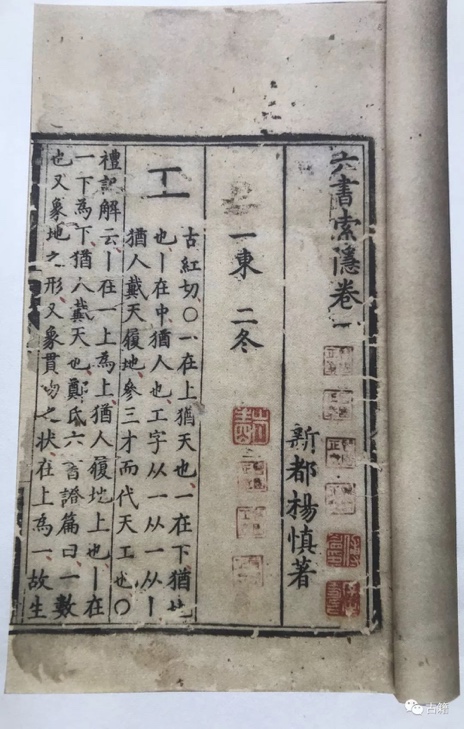 六書索隱卷一
新都楊慎著
一東 二冬
工
古紅切〇一在上猶天也一在下猶地
也丨在中猶人也工字从一从一从丨
猶人戴天履地參三才而代天工也〇
禮記解云丨在一上爲上猶人履地上也丨在
一下爲下猶人戴天也鄭氏六書證篇曰一數
也又象地之形又象貫物之状在上爲一故生
古籍